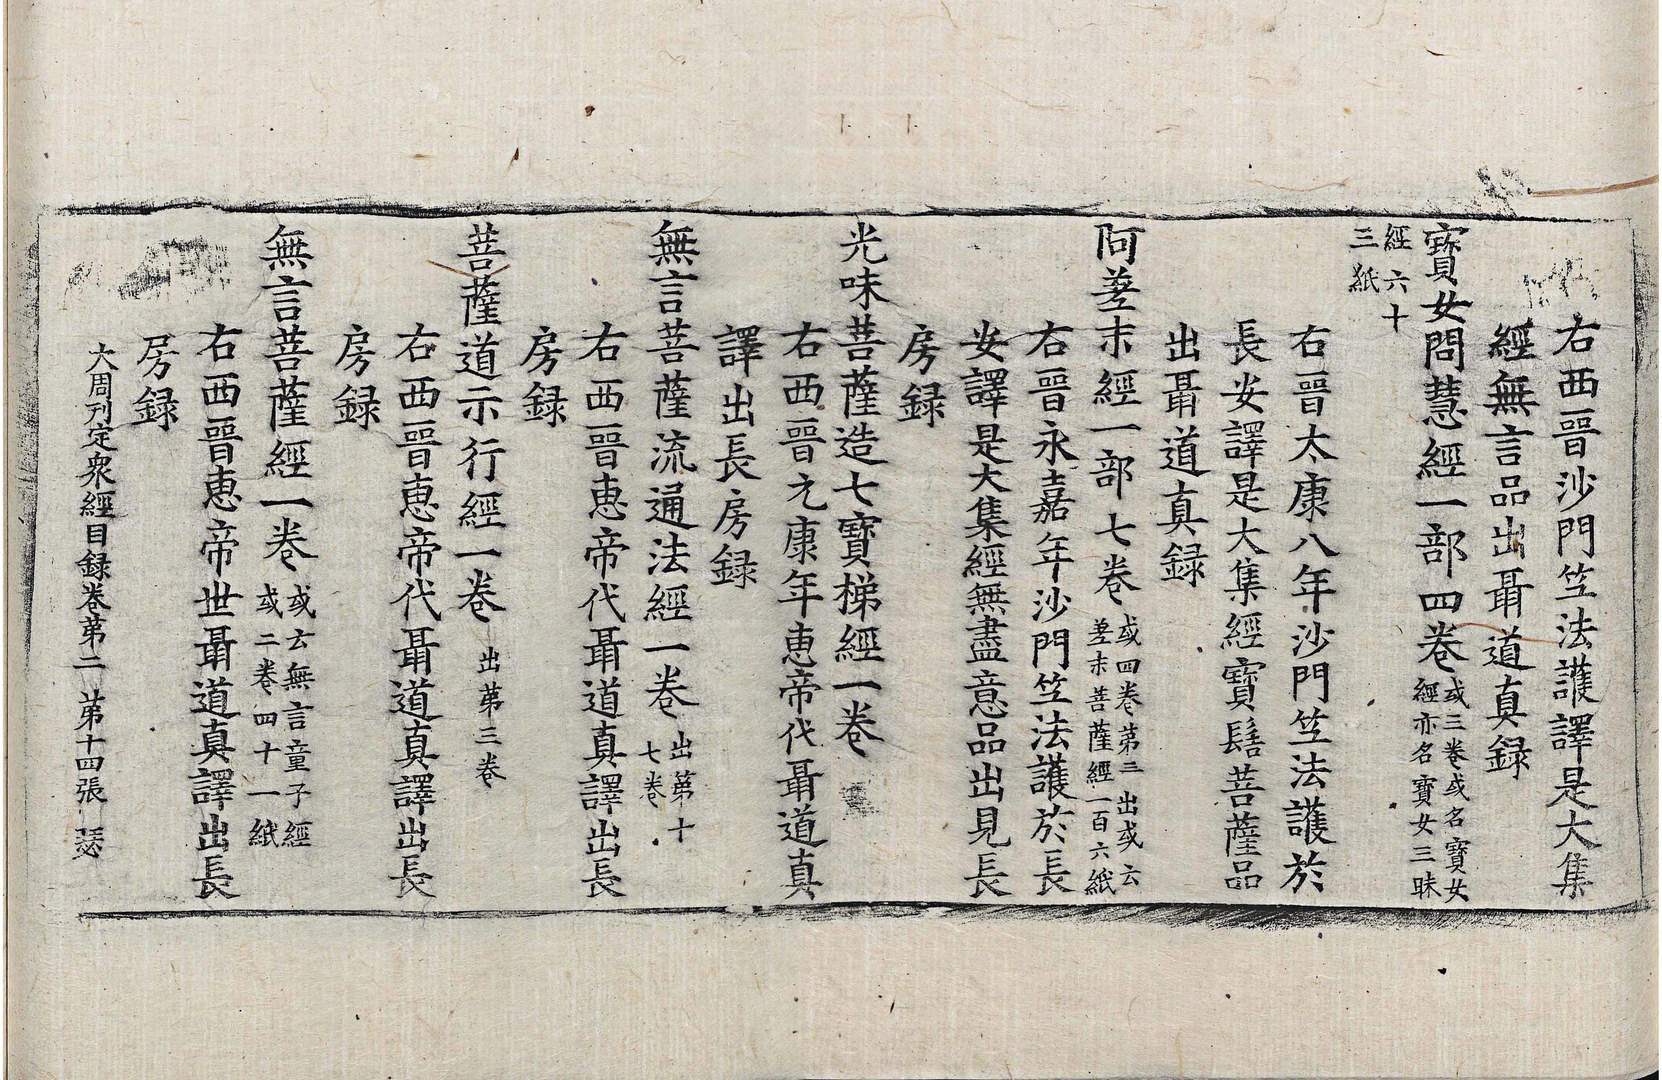 右西晉沙門竺法護譯是大集
經無言品出聶道真録
寳女問慧經一部四卷或三卷或名寳女
經亦名寳女三昧
經六十
三紙
右晉太康八年沙門竺法護於
長安譯是大集經寳髻菩薩品
出聶道真録
阿差末經一部七卷或四卷第二出或云
差末菩薩經一百六紙
右晉永嘉年沙門竺法護於長
安譯是大集經無盡意品出見長
房録
光味菩薩造七寳梯經一卷
右西晉元康年惠帝代聶道真
譯出長房録
無言菩薩流通法經一卷出第十
七卷
右西晉惠帝代聶道真譯出長
房録
菩薩道示行經一卷出第三卷
右西晉惠帝代聶道真譯出長
房録
無言菩薩經一卷或云無言童子經
或二卷四十一紙
右西晉惠帝世聶道真譯出長
房録
大周刊定衆經目録卷第二 第十四張 瑟